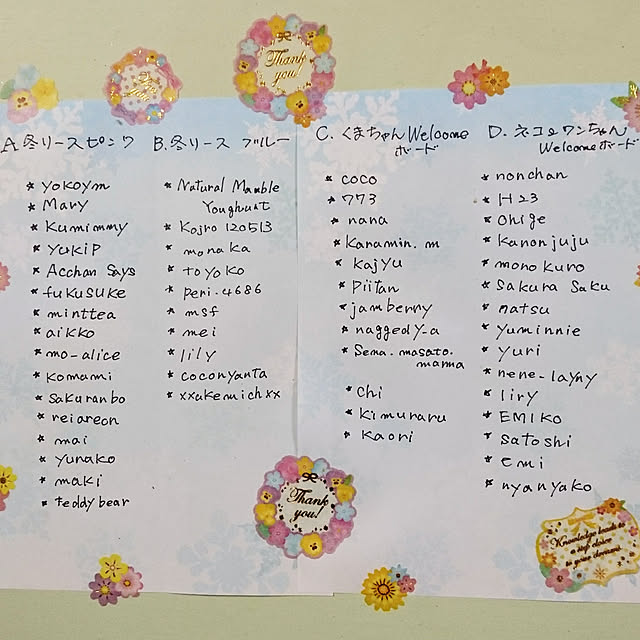 Thank
you!
A. 冬リース ピンク
* yokoym
* Mary
* Kumimmy
* YUKIP
* Acchan Says
* fukusuke
* minttea
* aikko
* mo-alice
* komami
* sakuranbo
* reiareon
* mai
* yunako
* maki
* teddy bear
B. 冬リース ブルー
* Natural Mamble
Youghuat
* Kojro 120513
* monaka
* toyoko
* peri.4686
* msf
* mei
* lily
* coconyanta
* xxakemichxx
C. くまちゃん Welcome
ボード
* coco
* 773
* nana
* Kanamin. m
* kajyu
* piitan
* jamberry
* naggedy-a
* Sema. masato.
mama
* chi
* kimuraru
* kaori
D. ネコ&ワンちゃん
Welcomeボード
* nonchan
* H23
* ohige
* kanonjuju
* monokuro
* sakura saku
* natsu
* yuminnie
* yuri
* nene-layny
* liry
* EMIKO
* satoshi
* emi
* nyanyako
Thank
you!
Knowledge leads to
a step closer
to your dreams.